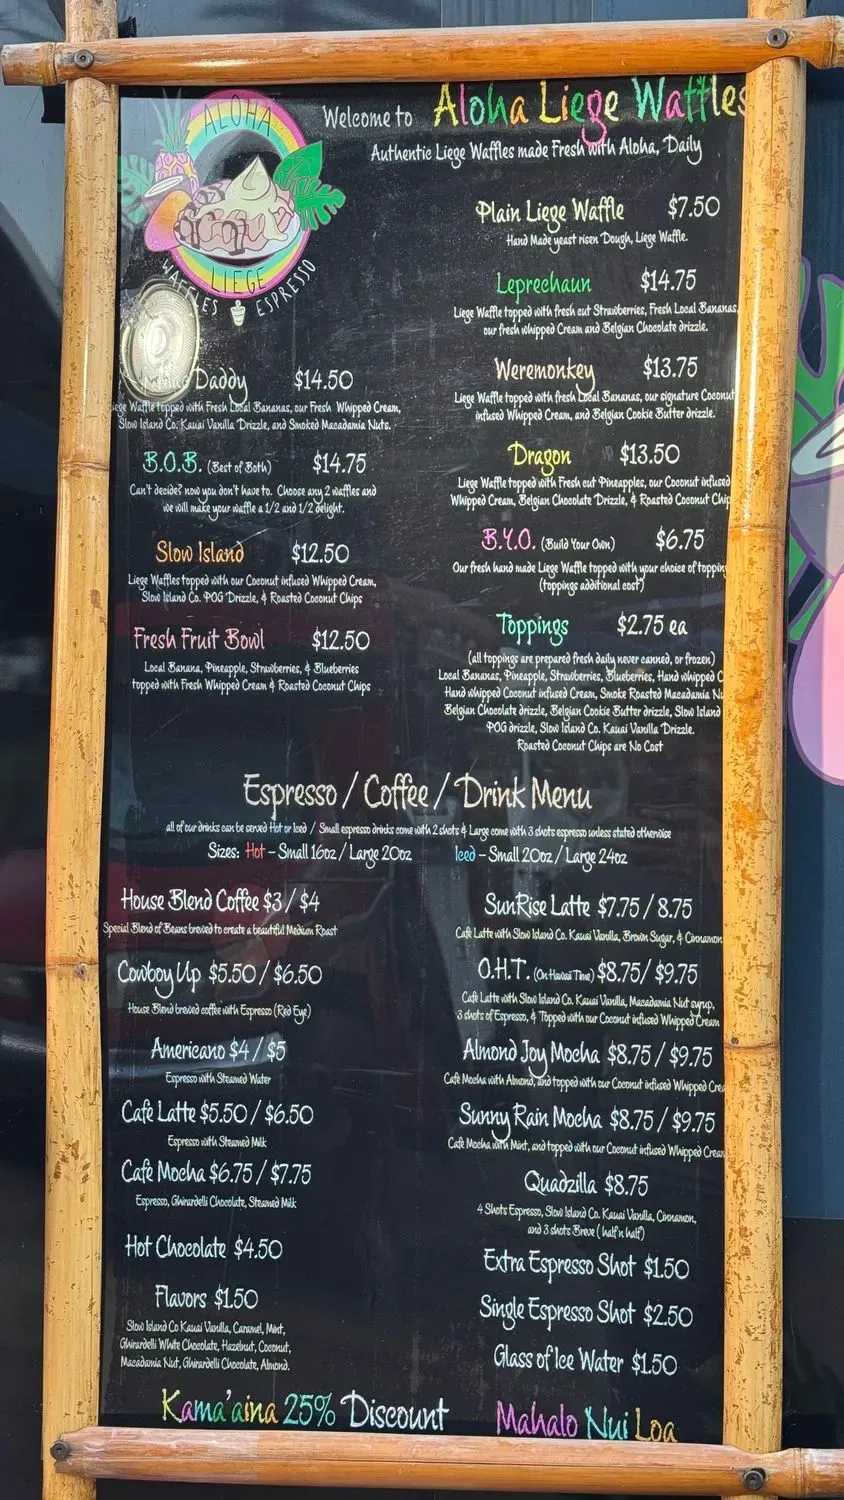 ALOHA
LIEGE
WAFFLES ESPRESSO
Welcome to Aloha Liege Waffles
Authentic Liege Waffles made Fresh with Aloha, Daily
Plain Liege Waffle $7.50
Hand Made yeast risen Dough, Liege Waffle.
Leprechaun $14.75
Liege Waffle topped with fresh cut Strawberries, Fresh Local Bananas,
our fresh whipped Cream and Belgian Chocolate drizzle.
Weremonkey $13.75
Liege Waffle topped with fresh Local Bananas, our signature Coconut
infused Whipped Cream, and Belgian Cookie Butter drizzle.
Dragon $13.50
Liege Waffle topped with Fresh cut Pineapples, our Coconut infused
Whipped Cream, Belgian Chocolate Drizzle, & Roasted Coconut Chip
B.Y.O. (Build Your Own) $6.75
Our fresh hand made Liege Waffle topped with your choice of toppin
(toppings additional cost)
Toppings $2.75 ea
(all toppings are prepared fresh daily never canned, or frozen)
Local Bananas, Pineapple, Strawberries, Blueberries, Hand whipped C
Hand whipped Coconut infused Cream, Smoke Roasted Macadamia Nu
Belgian Chocolate drizzle, Belgian Cookie Butter drizzle, Slow Island
POG drizzle, Slow Island Co. Kauai Vanilla Drizzle.
Roasted Coconut Chips are No Cost
Daddy $14.50
iege Waffle topped with Fresh Local Bananas, our Fresh Whipped Cream,
Slow Island Co. Kauai Vanilla Drizzle, and Smoked Macadamia Nuts.
B.O.B. (Best of Both) $14.75
Can't decide? now you don't have to. Choose any 2 waffles and
we will make your waffle a 1/2 and 1/2 delight.
Slow Island $12.50
Liege Waffles topped with our Coconut infused Whipped Cream,
Slow Island Co. POG Drizzle, & Roasted Coconut Chips
Fresh Fruit Bowl $12.50
Local Banana, Pineapple, Strawberries, & Blueberries
topped with Fresh Whipped Cream & Roasted Coconut Chips
Espresso / Coffee / Drink Menu
all of our drinks can be served Hot or Iced / Small espresso drinks come with 2 shots & Large come with 3 shots espresso unless stated otherwise
Sizes: Hot – Small 16oz / Large 20oz Iced – Small 20oz / Large 24oz
House Blend Coffee $3 / $4
Special Blend of Beans brewed to create a beautiful Medium Roast
Cowboy Up $5.50 / $6.50
House Blend brewed coffee with Espresso (Red Eye)
Americano $4 / $5
Espresso with Steamed Water
Café Latte $5.50 / $6.50
Espresso with Steamed Milk
Café Mocha $6.75 / $7.75
Espresso, Ghirardelli Chocolate, Steamed Milk
Hot Chocolate $4.50
Flavors $1.50
Slow Island Co Kauai Vanilla, Caramel, Mint,
Ghirardelli White Chocolate, Hazelnut, Coconut,
Macadamia Nut, Ghirardelli Chocolate, Almond.
SunRise Latte $7.75 / 8.75
Café Latte with Slow Island Co. Kauai Vanilla, Brown Sugar, & Cinnamon
O.H.T. (On Hawaii Time) $8.75/ $9.75
Café Latte with Slow Island Co. Kauai Vanilla, Macadamia Nut syrup,
3 shots of Espresso, & Topped with our Coconut infused Whipped Cream
Almond Joy Mocha $8.75 / $9.75
Café Mocha with Almond, and topped with our Coconut infused Whipped Crea
Sunny Rain Mocha $8.75 / $9.75
Café Mocha with Mint, and topped with our Coconut infused Whipped Cream
Quadzilla $8.75
4 Shots Espresso, Slow Island Co. Kauai Vanilla, Cinnamon,
and 3 shots Breve ( half n half)
Extra Espresso Shot $1.50
Single Espresso Shot $2.50
Glass of Ice Water $1.50
Kama'aina 25% Discount Mahalo Nui Loa